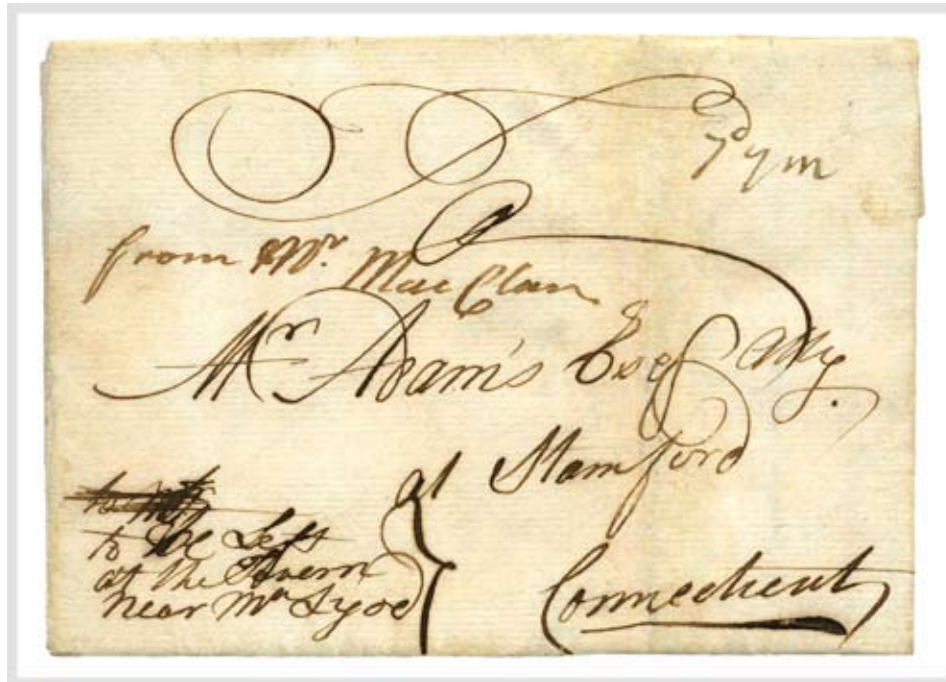 from Mr. Mac Clain
Mr Adam's Esqr Atty.
at Stamford
Connecticut
to be Left
at the Tavern
near Mr